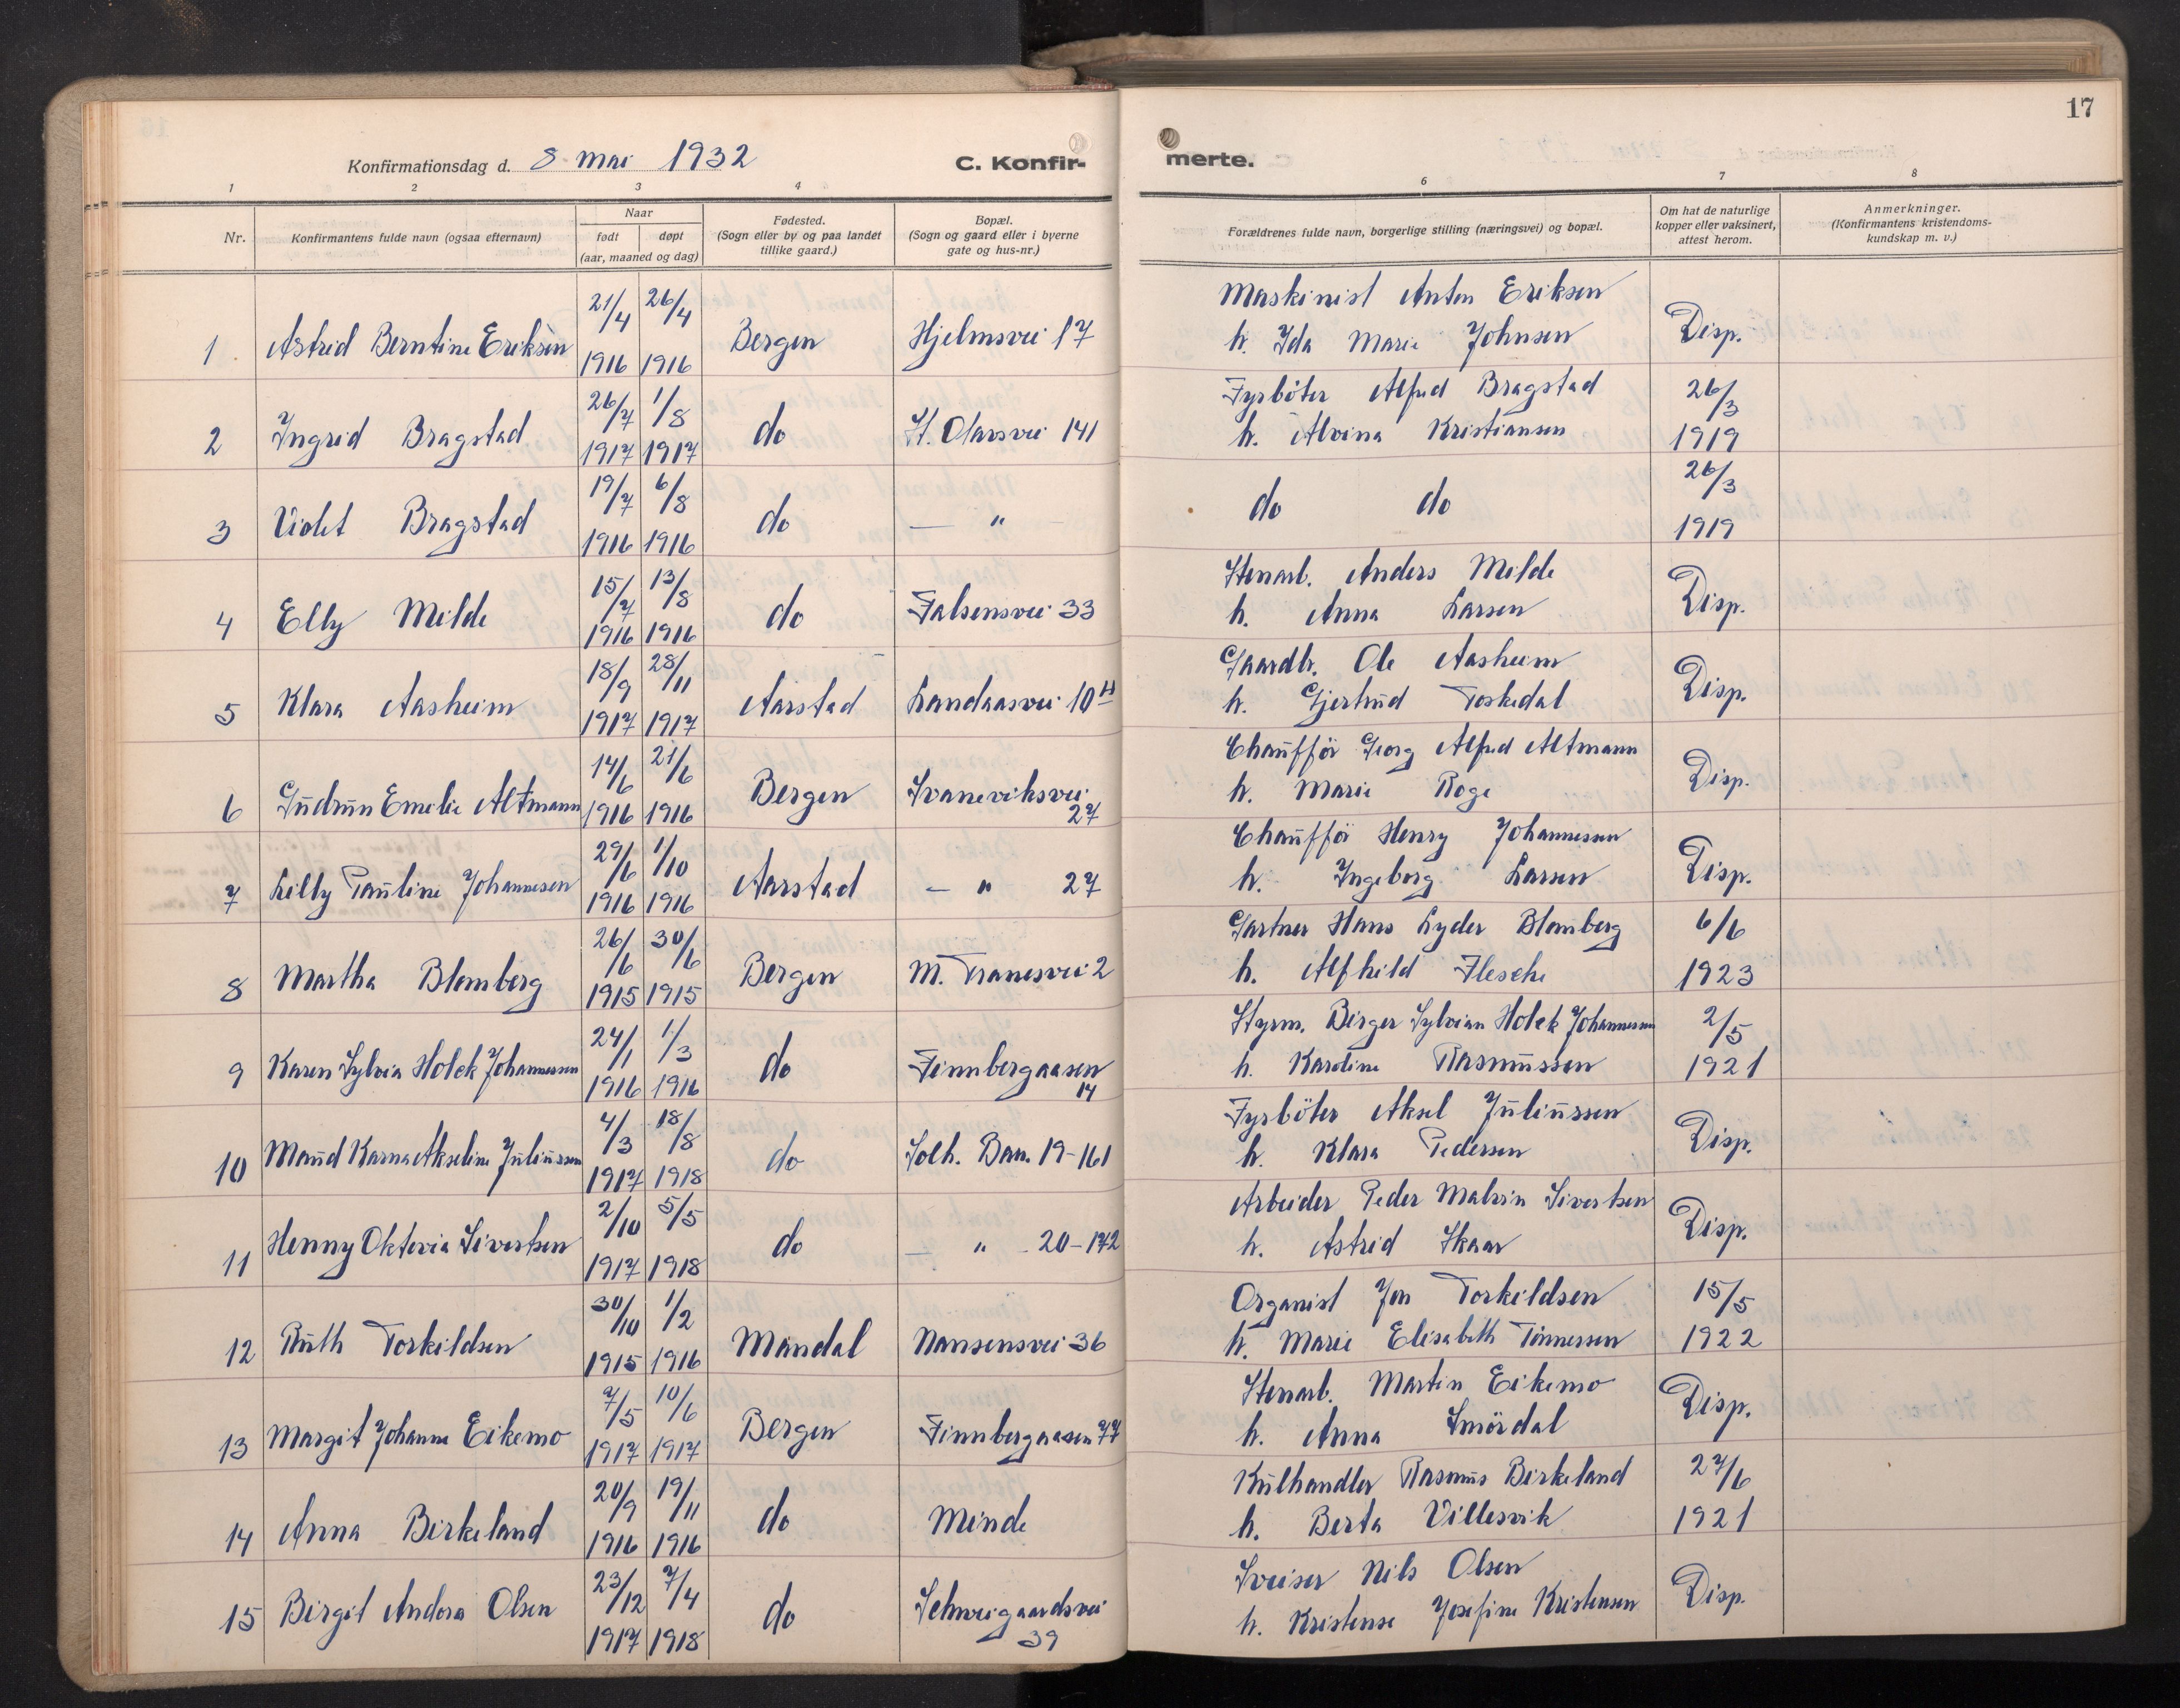 17
Konfirmationsdag d. 8 mai 1932
C. Konfir-
merte.
1 2 3 4
6 7 8
Nr.
Konfirmantens fulde navn (ogsaa efternavn)
Naar
født døpt
(aar, maaned og dag)
Fødested.
(Sogn eller by og paa landet
tillike gaard.)
Bopæl.
(Sogn og gaard eller i byerne
gate og hus-nr.)
Forældrenes fulde navn, borgerlige stilling (næringsvei) og bopæl.
Om hat de naturlige
kopper eller vaksinert,
attest herom.
Anmerkninger.
(Konfirmantens kristendoms-
kundskap m. v.)
1 Astrid Berntine Eriksen 21/4 1916 26/4 1916 Bergen Hjelmsvei 17
Maskinist Anton Eriksen
h. Ida Marie Johnsen
Disp.
2 Ingrid Bragstad 26/7 1917 1/8 1917 do St. Olavsvei 141
Fyrböter Alfred Bragstad
h. Alvina Kristiansen
26/3 1919
3 Violet Bragstad 19/7 1916 6/8 1916 do — "
do do
26/3 1919
4 Elly Milde 15/7 1916 13/8 1916 do Falsensvei 33
Stenarb. Anders Milde
h. Anna Larsen
Disp.
5 Klara Aasheim 18/9 1917 28/11 1917 Aarstad Landaasvei 10
Gaardbr. Ole Aasheim
h. Gjertrud Toskedal
Disp.
6 Gudrun Emelie Altmann 14/6 1916 21/6 1916 Bergen Svaneviksvei 27
Chaufför Georg Alfred Altmann
h. Marie Roge
Disp.
7 Lilly Pauline Johannesen 29/6 1916 1/10 1916 Aarstad — " 27
Chaufför Henry Johannessen
h. Ingeborg Larsen
Disp.
8 Martha Blomberg 26/6 1915 30/6 1915 Bergen M. Tranesvei 2
Gartner Hans Lyder Blomberg
h. Alfhild Flesche
6/6 1923
9 Karen Sylvia Holck Johannessen 24/1 1916 1/3 1916 do Finnbergaasen 14
Styrm. Birger Sylvian Holck Johannessen
h. Karoline Rasmussen
2/5 1921
10 Maud Karna Akseline Juliussen 4/3 1917 18/8 1918 do Solh. Bar. 19-161
Fyrböter Aksel Juliussen
h. Klara Pedersen
Disp.
11 Henny Oktovia Sivertsen 2/10 1917 5/5 1918 do — " 20-172
Arbeider Peder Malvin Sivertsen
h. Astrid Skaar
Disp.
12 Ruth Torkildsen 30/10 1915 1/2 1916 Mandal Nansensvei 36
Organist Jon Torkildsen
h. Marie Elisabeth Tönnessen
15/5 1922
13 Margit Johanne Eikemo 7/5 1917 10/6 1917 Bergen Finnbergaasen 77
Stenarb. Martin Eikemo
h. Anna Smördal
Disp.
14 Anna Birkeland 20/9 1916 19/11 1916 do Minde
Kulhandler Rasmus Birkeland
h. Berta Villesvik
27/6 1921
15 Birgit Andora Olsen 23/12 1917 7/4 1918 do Schweigaardsvei 39
Sveiser Nils Olsen
h. Kristense Josefine Kristensen
Disp.